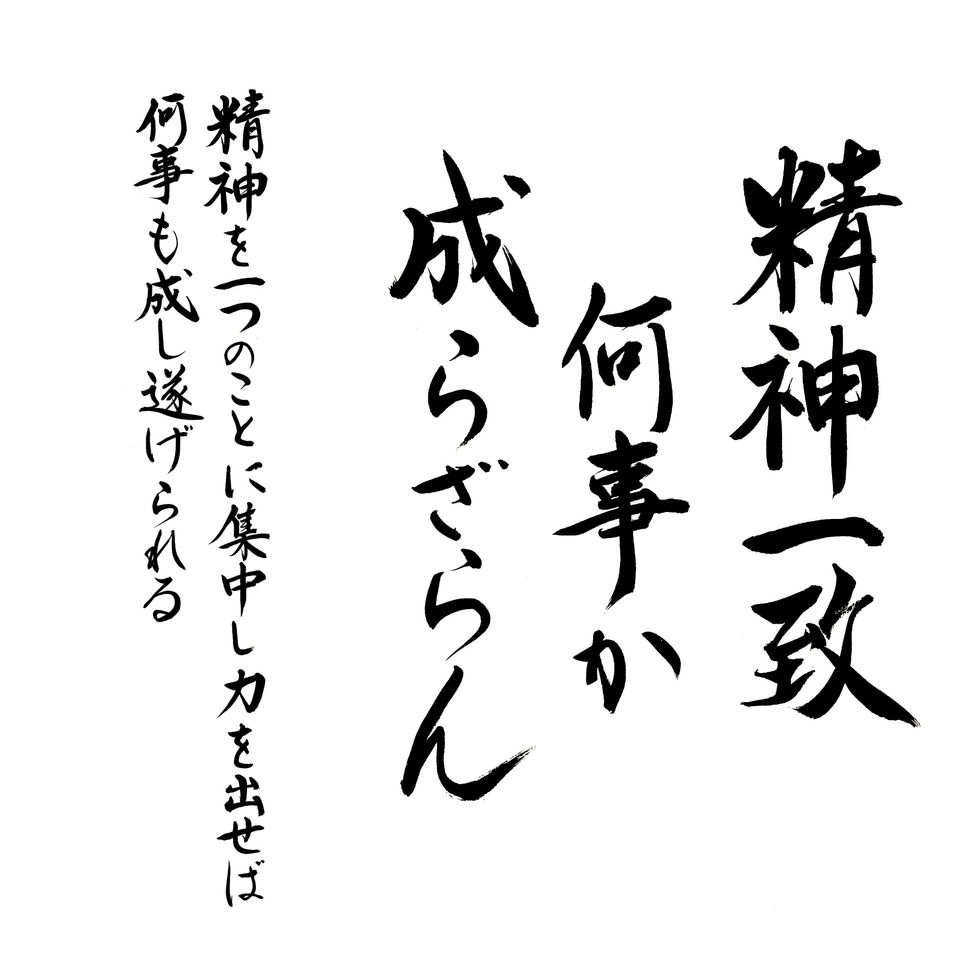 精神一致
何事か
成らざらん
精神を一つのことに集中し力を出せば
何事も成し遂げられる